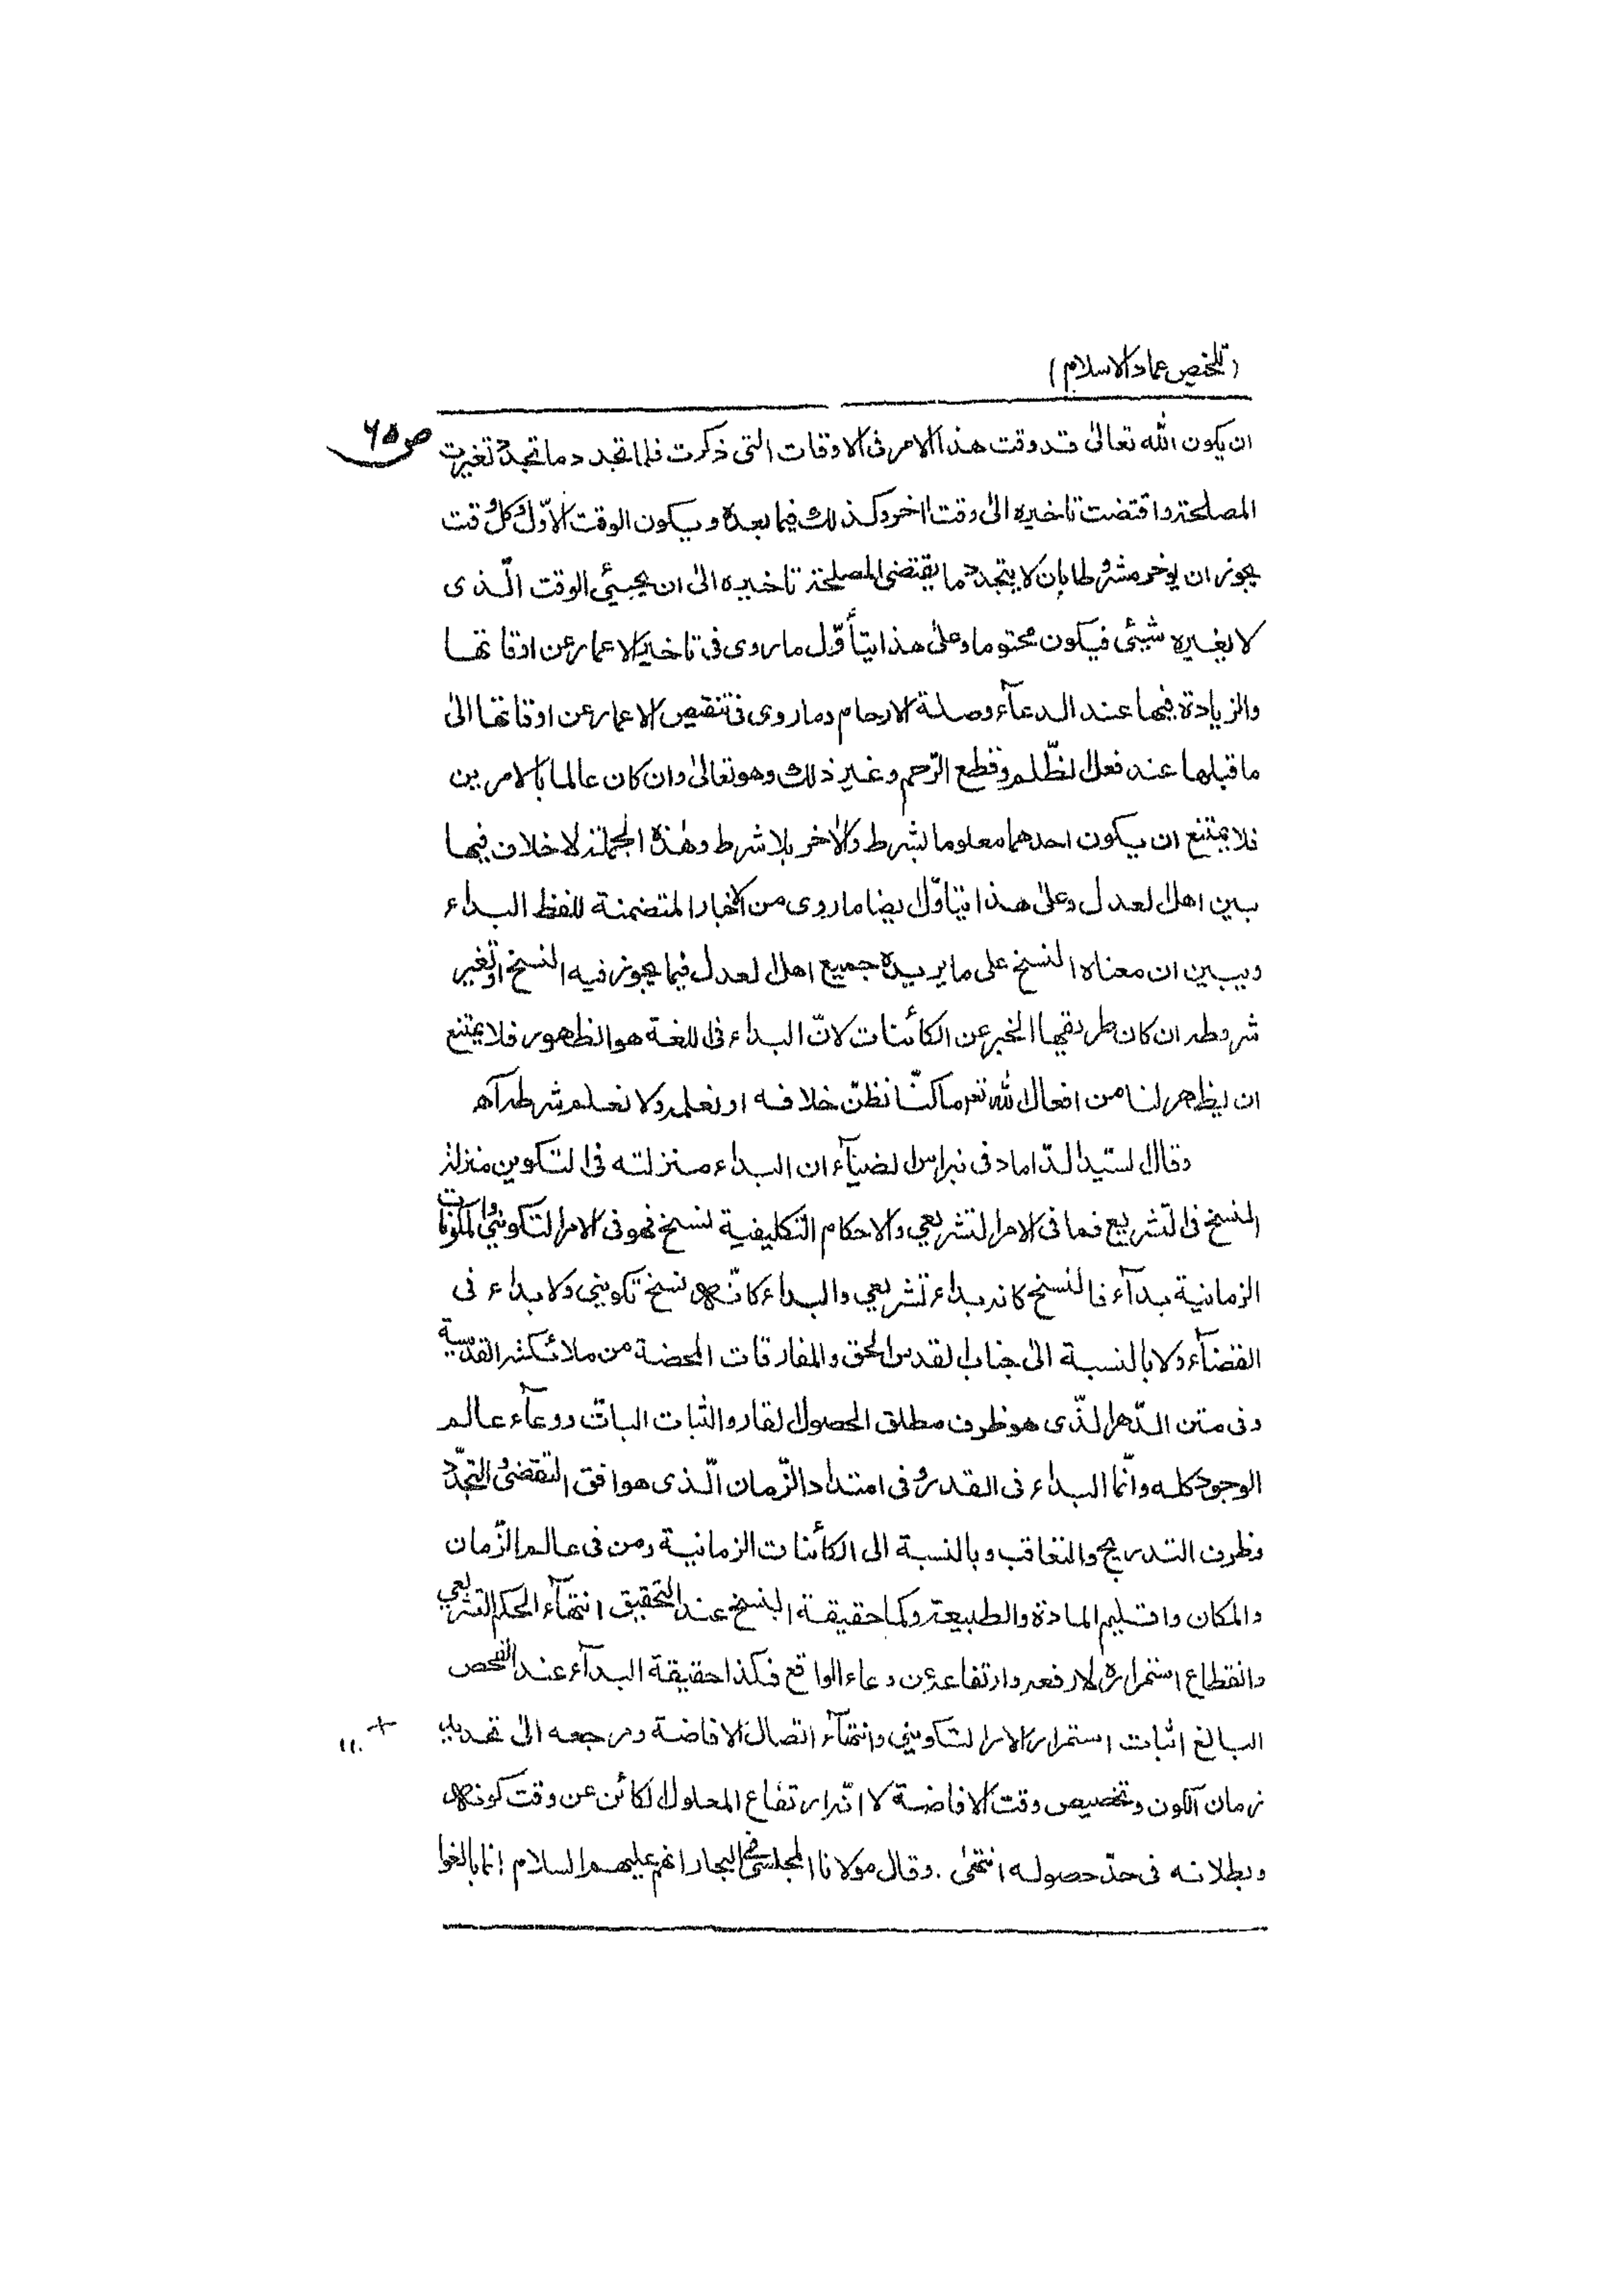 (تلخيص عماد الاسلام)
ص ٦٥
ان يكون الله تعالىٰ قد وقت هذا الامر فى الاوقات التى ذكرت فلما تجدد ما تجدد تغيرت
المصلحة واقتضت تاخيره الىٰ وقت اخر وكذلك فيما بعده ويكون الوقت الاوّل وكل وقت
يجوز ان يوخر مشروطا بان لا يتجدد ما يقتضى المصلحة تاخيره الىٰ ان يجيئ الوقت الّذى
لا يغيره شيئى فيكون محتوما وعلىٰ هذا يتأوّل ما روى فى تاخير الاعمار عن اوقاتها
والزيادة فيها عند الدعآء وصلة الارحام وما روى فى تنقيص الاعمار عن اوقاتها الىٰ
ما قبلها عند فعل الظّلم وقطع الرّحم وغير ذلك وهو تعالىٰ وان كان عالما بالامرين
فلا يمتنع ان يكون احدهما معلوما بشرط والاٰخر بلا شرط وهٰذه الجملة لا خلاف فيها
بين اهل العدل وعلىٰ هذا يتاوّل ايضا ما روى من الاخبار المتضمنة للفظ البداء
ويبين ان معناه النسخ على ما يريده جميع اهل العدل فيما يجوز فيه النسخ او تغير
شروطه ان كان طريقها الخبر عن الكائنات لانّ البداء فى اللغة هو الظهور فلا يمتنع
ان يظهر لنا من افعال الله تعـ ما كنّا نظنّ خلافه او نعلمه ولا نعلم شرطه آه
وقال السّيد الدّاماد فى نبراس الضيآء ان البداء منزلته فى التكوين منزلة
النسخ فى التّشريع فما فى الامر التشريعي والاحكام التكليفية نسخ فهو فى الامر التكوينى والمكونات
الزمانية بدآء فالنسخ كانه بداء تشريعي والبداء كانّه نسخ تكويني ولا بداء فى
القضآء ولا بالنسبة الىٰ جناب القدس الحق والمفارقات المحضة من ملائكته القدسية
وفى متن الدّهر الّذى هو ظرف مطلق الحصول القار والثبات البات ووعآء عالم
الوجود كله وانّما البداء فى القدر وفى امتداد الزّمان الّذى هو افق التقضى والتجدّد
وظرف التدريج والتعاقب وبالنسبة الى الكائنات الزمانية ومن فى عالم الزّمان
والمكان واقليم المادة والطبيعة وكما حقيقة النسخ عند التحقيق انتهآء الحكم التشريعي
وانقطاع استمراره لا رفعه وارتفاعه عن وعاء الواقع فكذا حقيقة البدآء عند الفحص
البالغ اثبات استمرار الامر التكويني وانتهآء اتصال الافاضة ومرجعه الىٰ تحديد
زمان الكون وتخصيص وقت الافاضة لا انّه ارتفاع المعلول الكائن عن وقت كونه
وبطلانه فى حدّ حصوله انتهىٰ . وقال مولانا المجلسى فى البحار انهم عليهم السلام انما بالغوا